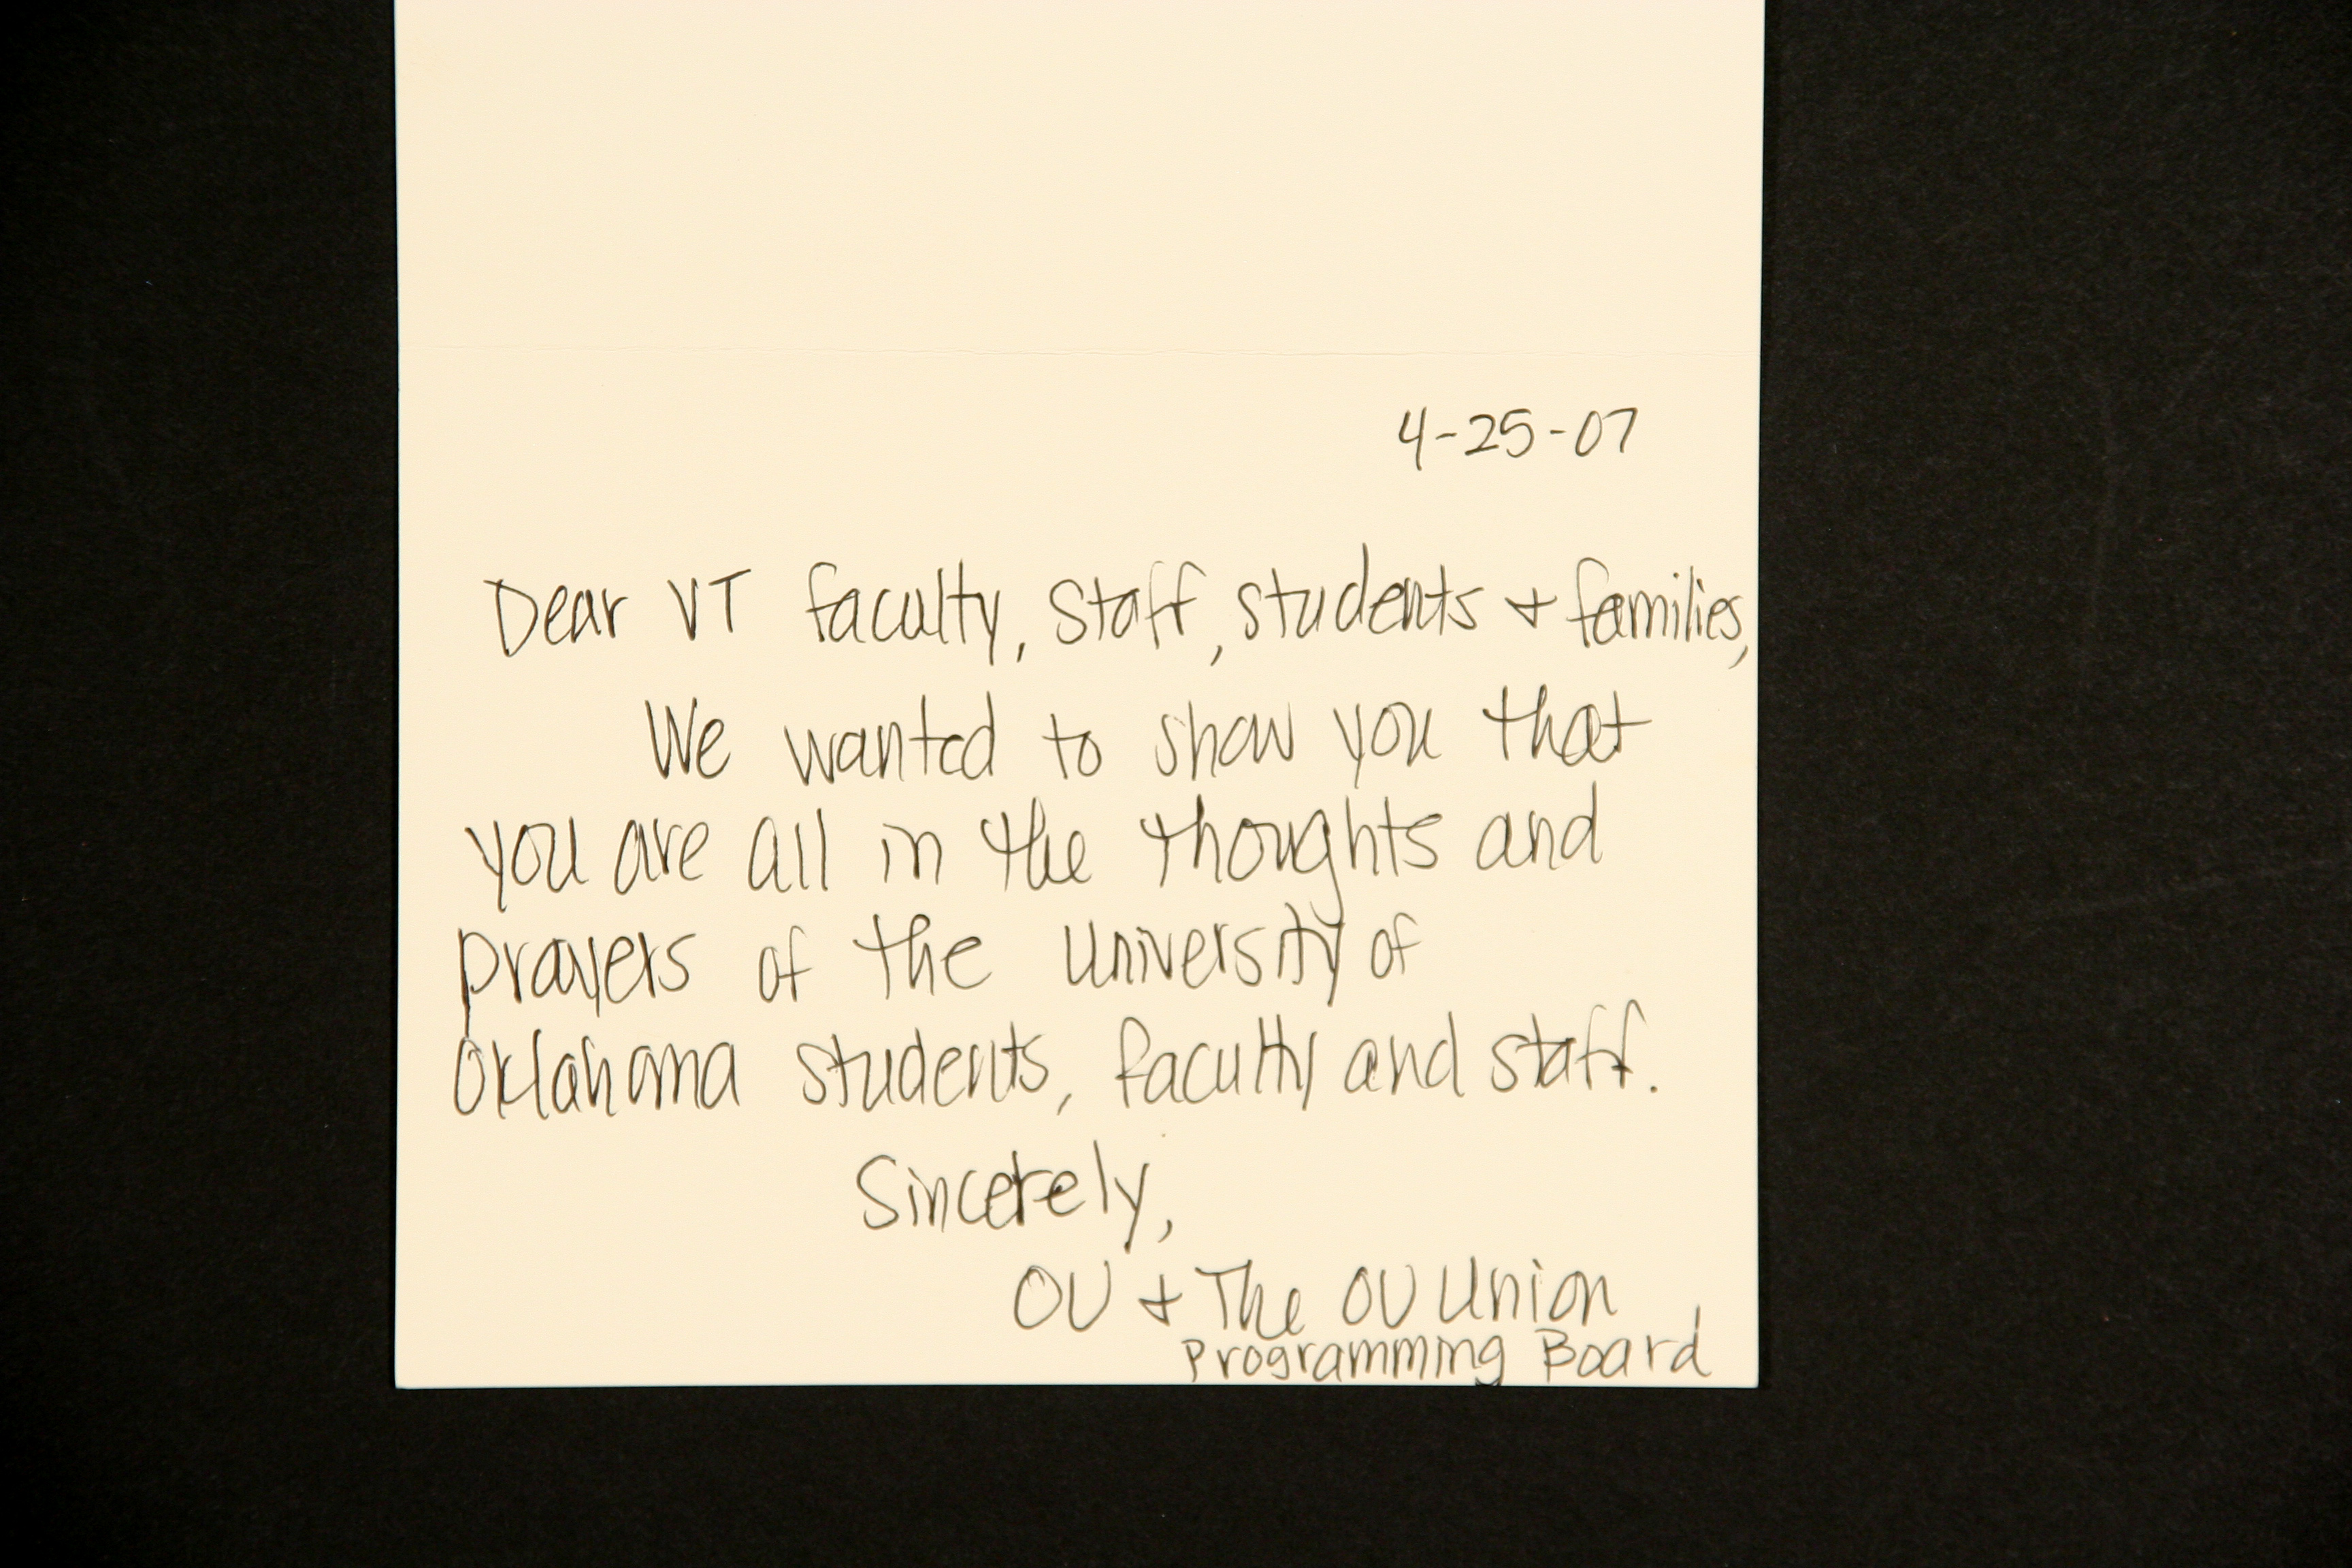 4-25-07
Dear VT faculty, staff, students + families,
We wanted to show you that
you are all in the thoughts and
prayers of the University of
Oklahoma students, faculty and staff.
Sincerely,
OU + The OU Union
Programming Board